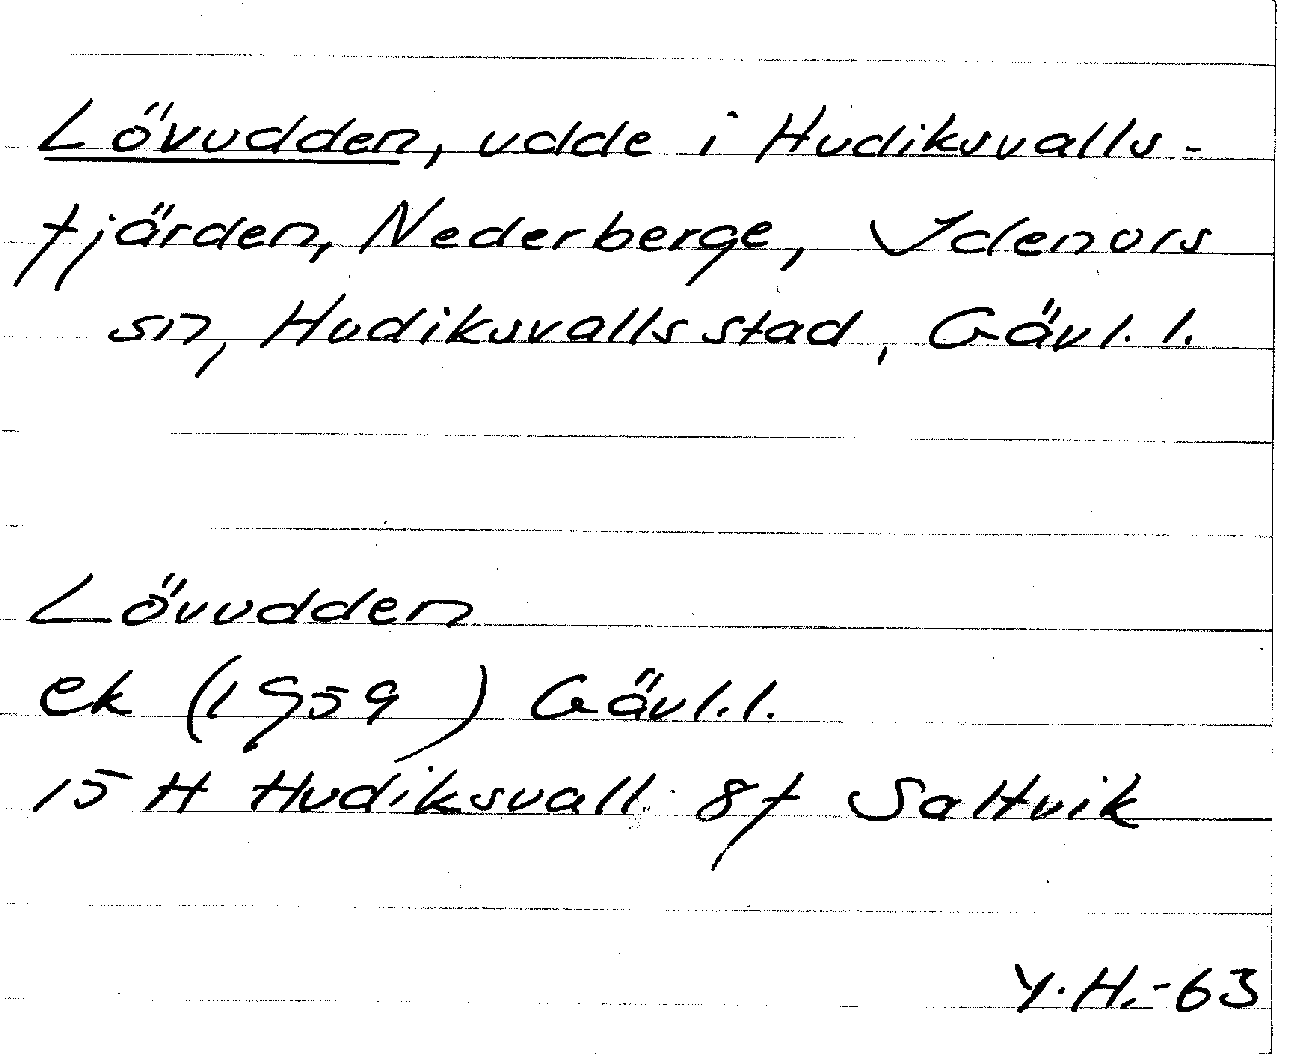 Lövudden, udde i Hudiksvalls-
fjärden, Nederberge, Idenors
sn, Hudiksvalls stad, Gävl. l.
Lövudden
ek (1959) Gävl. l.
15 H Hudiksvall 8f Saltvik
Y. H. -63